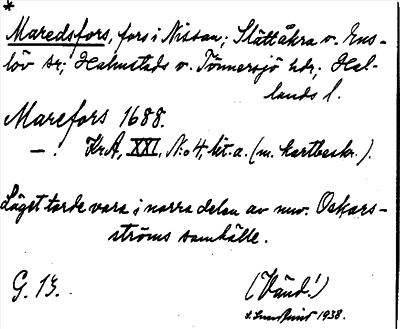 *
Maredsfors, fors i Nissan; Slättåkra o. Ens-
löv sr; Halmstads o. Tönnersjö hdr; Hal-
lands l.
Marefors 1688.
— . KrA, XXI, N:o 4, lit. a. (m. kartbeskr.).
Läget torde vara i norra delen av nuv. Oskars-
ströms samhälle.
G. 13. (Vänd!)
1938.